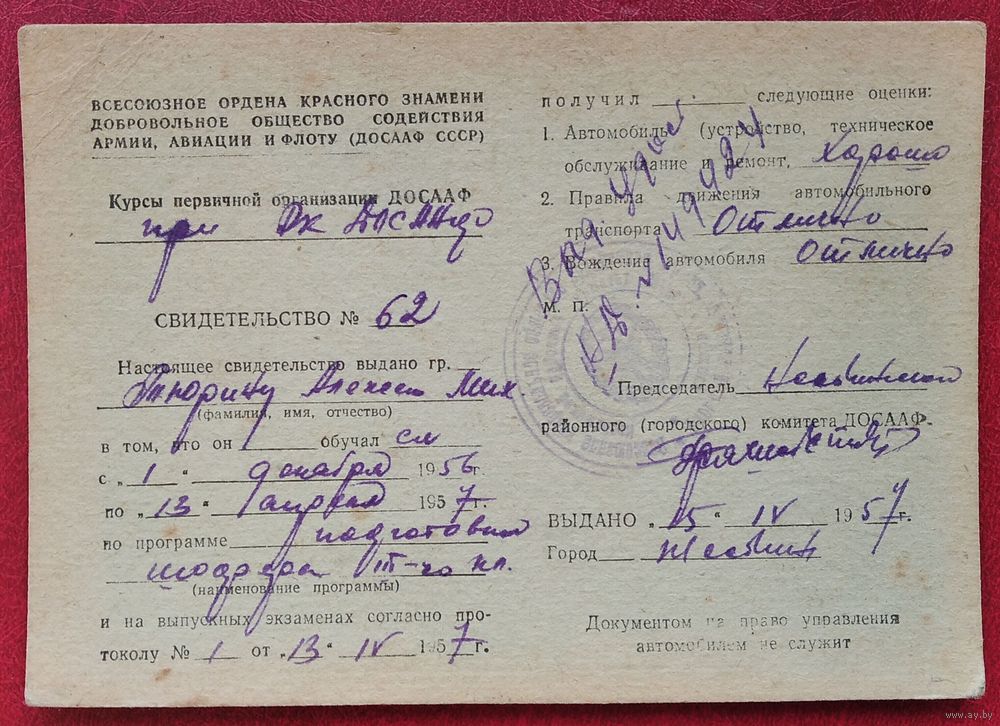 ВСЕСОЮЗНОЕ ОРДЕНА КРАСНОГО ЗНАМЕНИ
ДОБРОВОЛЬНОЕ ОБЩЕСТВО СОДЕЙСТВИЯ
АРМИИ, АВИАЦИИ И ФЛОТУ (ДОСААФ СССР)
Курсы первичной организации ДОСААФ
при РК ДОСААФ
СВИДЕТЕЛЬСТВО № 62
Настоящее свидетельство выдано гр.
Тюрину Алексею Мих.
(фамилия, имя, отчество)
в том, что он обучал ся
с „ 1 " декабря 1956г.
по „ 13 " апреля 1957г.
по программе подготовки
шофера III-го кл.
(наименование программы)
и на выпускных экзаменах согласно про-
токолу № 1 от „13" IV 1957г.
получил следующие оценки:
1. Автомобиль (устройство, техническое
обслуживание и ремонт, хорошо
2. Правила движения автомобильного
транспорта отлично
3. Вождение автомобиля отлично
М. П.
Председатель
районного (городского) комитета ДОСААФ
ВЫДАНО „15" IV 1957г.
Город
Документом на право управления
автомобилем не служит
www.ay.by